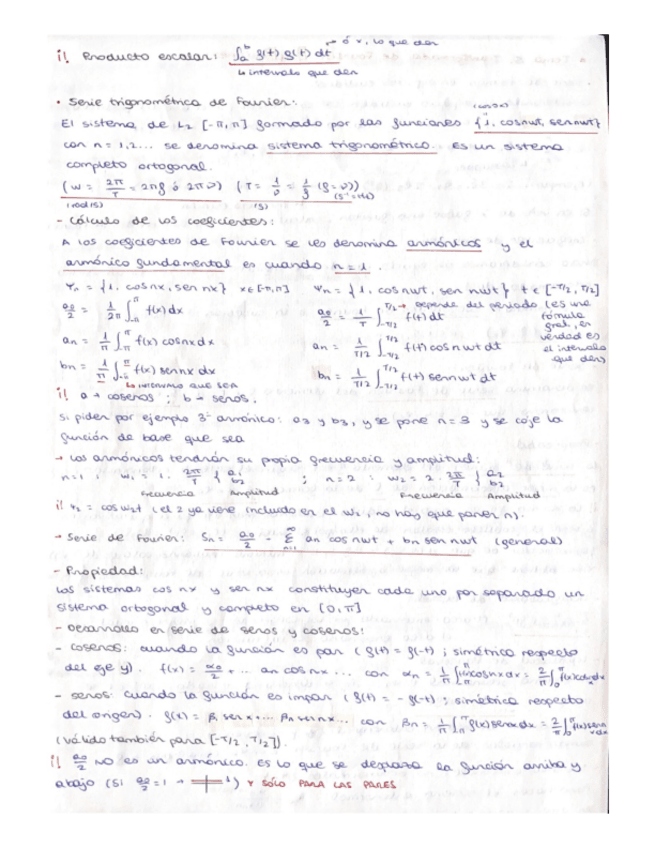 ó x, lo que den
i! Producto escalar: ∫ₐᵇ f(t) g(t) dt
↳ intervalo que den
· Serie trigonométrica de Fourier:
(cos 0x)
El sistema de L₂ [-π, π] formado por las funciones {1, cosnωt, sennωt}
con n = 1,2... se denomina sistema trigonométrico. Es un sistema
completo ortogonal.
(ω = 2π/T = 2πf ó 2πν) (T = 1/ν = 1/f (f = ν))
(rad/s) (s) (s⁻¹ = Hz)
- Cálculo de los coeficientes:
A los coeficientes de Fourier se les denomina armónicos y el
armónico fundamental es cuando n = 1.
Ψn = {1, cos nx, sen nx} x ∈ [-π, π] Ψn = {1, cos nωt, sen nωt} t ∈ [-T/2, T/2]
a₀/2 = 1/2π ∫_-π^π f(x) dx a₀/2 = 1/T ∫_-T/2^T/2 f(t) dt → depende del periodo (es una fórmula gral, en verdad es el intervalo que den)
an = 1/π ∫_-π^π f(x) cosnx dx an = 1/(T/2) ∫_-T/2^T/2 f(t) cos nωt dt
bn = 1/π ∫_-π^π f(x) sennx dx bn = 1/(T/2) ∫_-T/2^T/2 f(t) sennωt dt
↳ intervalo que sea
i! a → cosenos ; b → senos.
Si piden por ejemplo 3er armónico: a₃ y b₃, y se pone n = 3 y se coje la
función de base que sea
→ Los armónicos tendrán su propia frecuencia y amplitud:
n=1 : ω₁ = 1 · 2π/T { a₁ b₁ ; n=2 : ω₂ = 2 · 2π/T { a₂ b₂
Frecuencia Amplitud Frecuencia Amplitud
i! Ψ₂ = cos ω₂t (el 2 ya viene incluido en el ω₂, no hay que poner n).
→ Serie de Fourier: Sn = a₀/2 + Σ_{n=1}^∞ an cos nωt + bn sen nωt (general)
- Propiedad:
Los sistemas cos nx y sen nx constituyen cada uno por separado un
sistema ortogonal y completo en [0, π]
- Desarrollo en serie de senos y cosenos:
- Cosenos: cuando la función es par (f(t) = f(-t) ; simétrica respecto
del eje y). f(x) = α₀/2 + ... αn cos nx ... con αn = 1/π ∫_-π^π f(x)cosnx dx = 2/π ∫_0^π f(x)cosnx dx
- Senos: cuando la función es impar (f(t) = - f(-t) ; simétrica respecto
del origen). f(x) = β₁ sen x + ... βn sen nx ... con βn = 1/π ∫_-π^π f(x) sennx dx = 2/π ∫_0^π f(x) sennx dx
(Válido también para [-T/2, T/2]).
i! a₀/2 no es un armónico. Es lo que se desplaza la función arriba y
abajo (Si a₀/2 = 1 → 1) Y SÓLO PARA LAS PARES